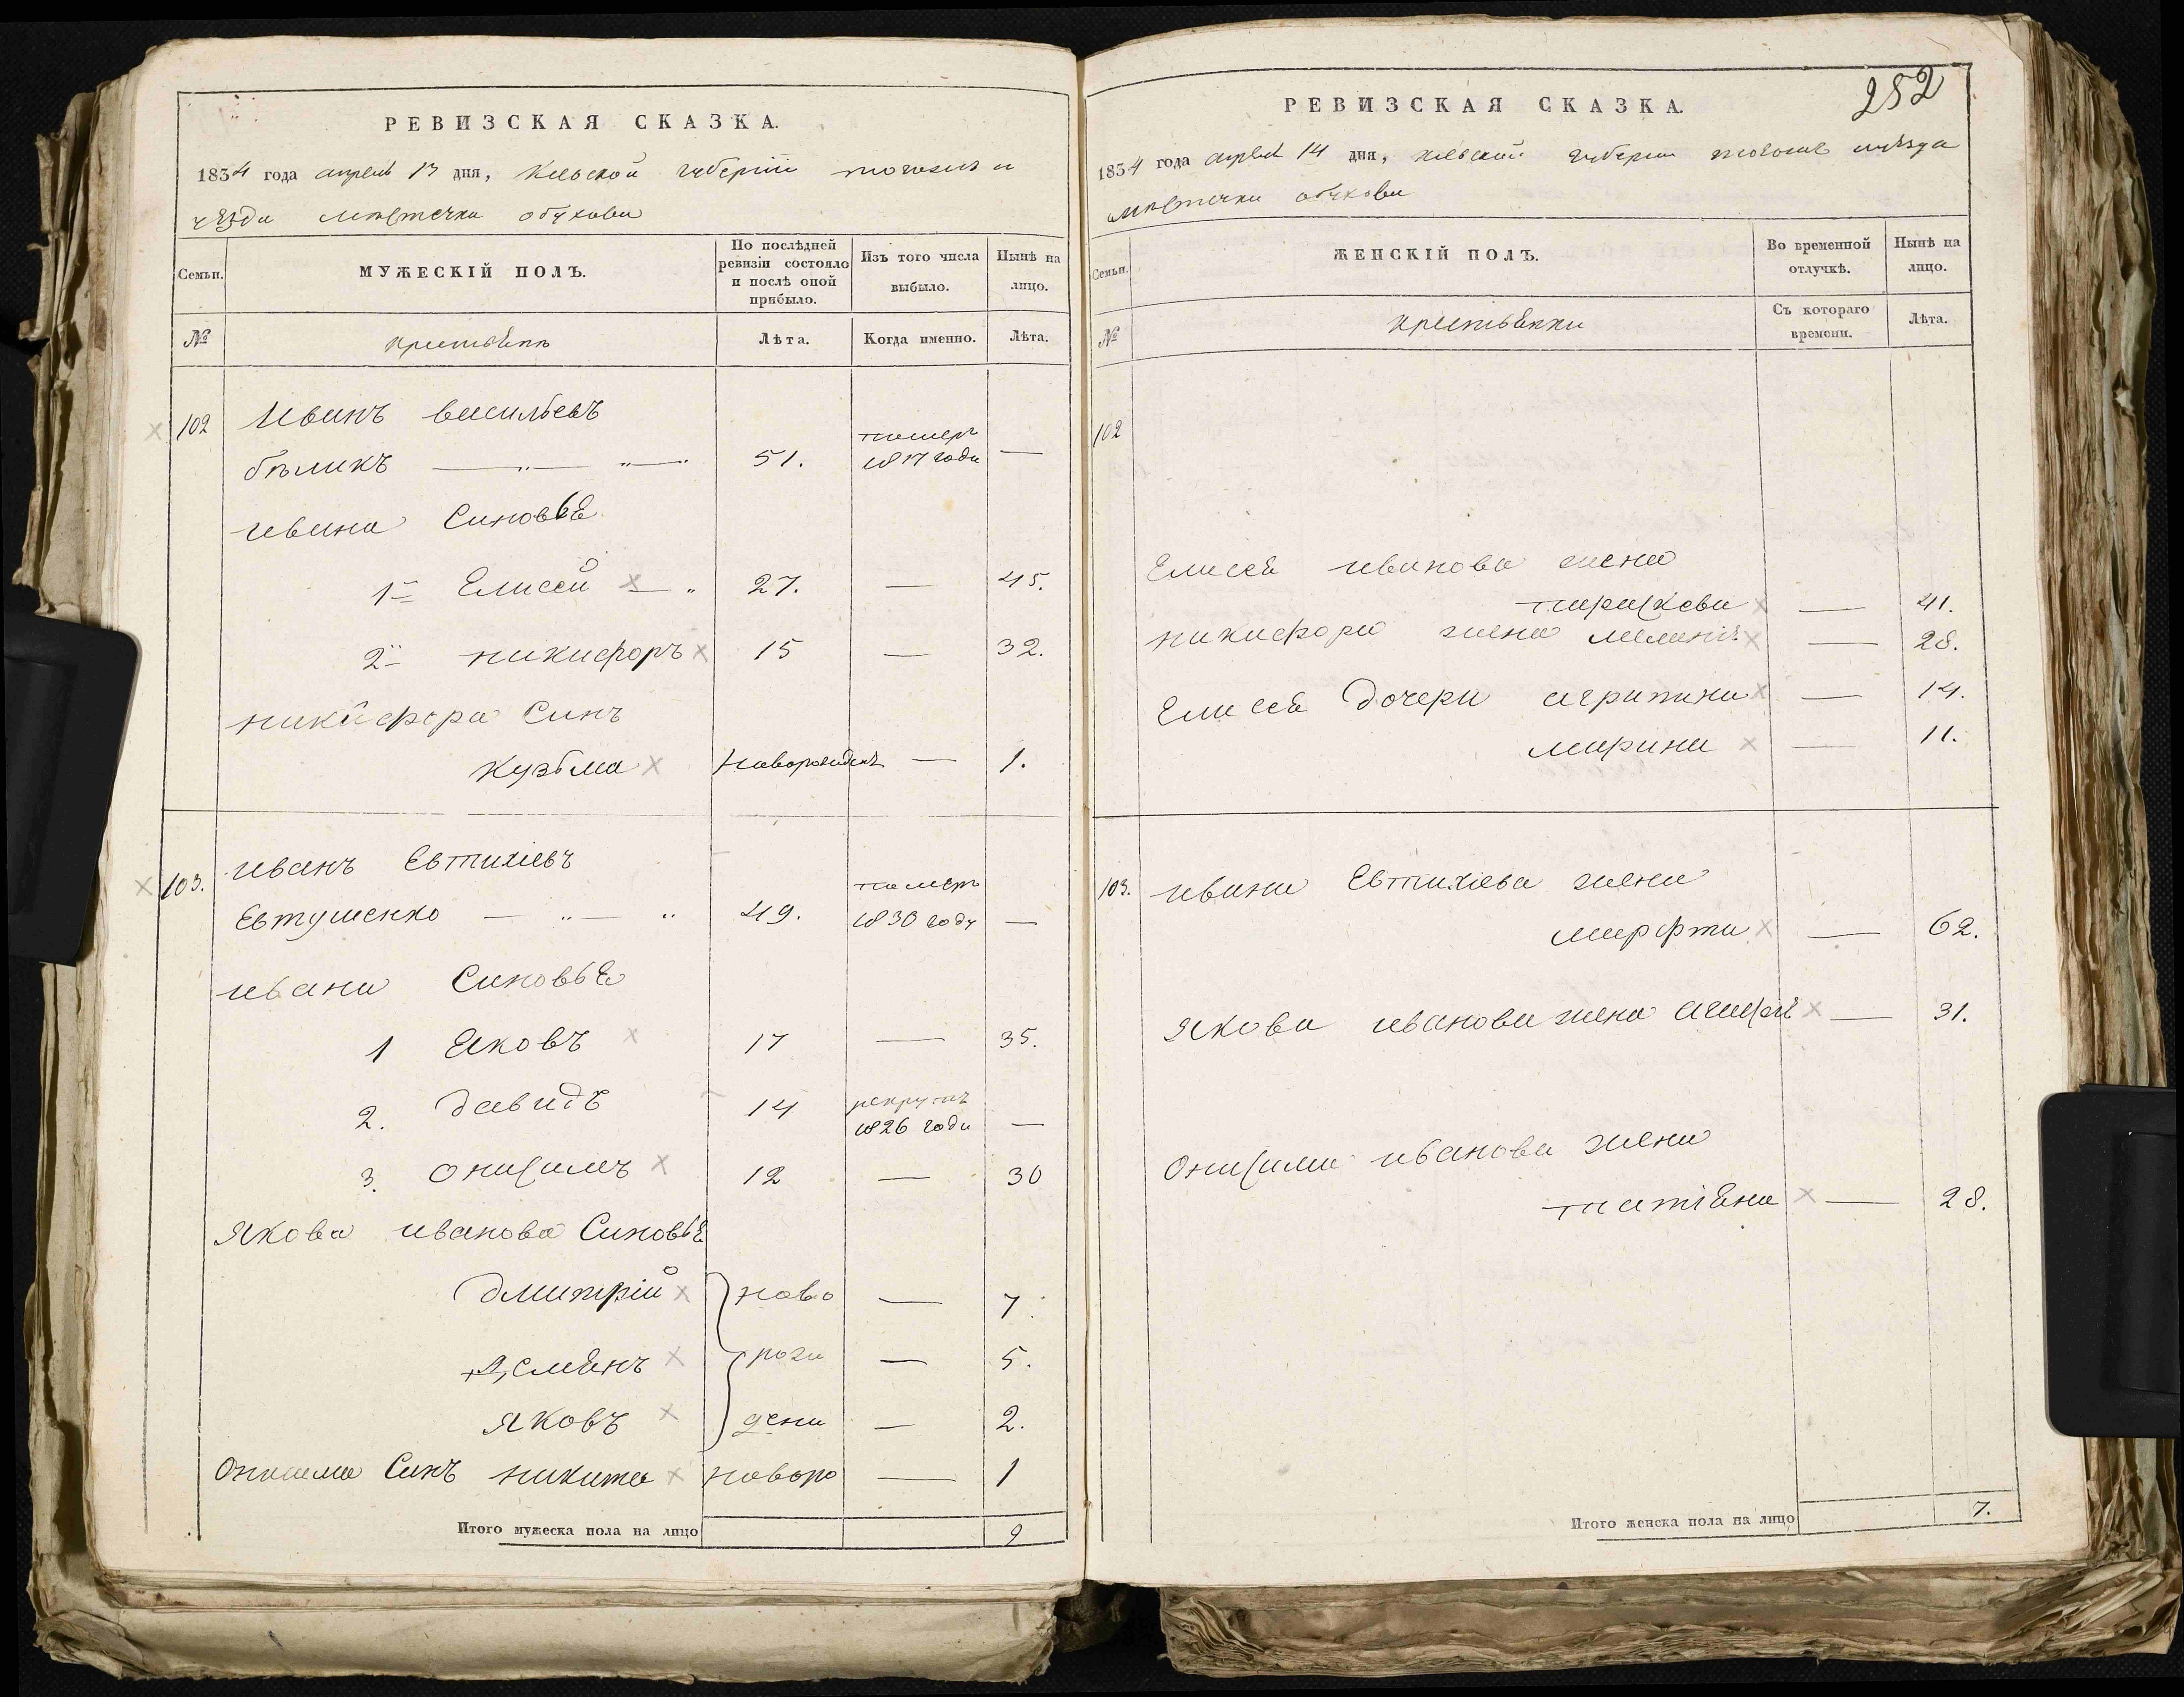 РЕВИЗСКАЯ СКАЗКА.
1834 года апреля 13 дня, Киевской губернiи того же
уезда местечка обухова
Семьи.
МУЖЕСКІЙ ПОЛЪ.
По послѣдней ревизіи состояло и послѣ оной прибыло.
Изъ того числа выбыло.
Нынѣ на лицо.
№
крестьяне
Лѣта.
Когда именно.
Лѣта.
102 Иванъ васильевъ
бѣликъ 51. померъ 1817 года —
ивана Синовья
1 Елисей 27. — 45.
2 никифоръ 15 — 32.
никифора Синъ
кузьма новорожденъ — 1.
103. иванъ Евтихіевъ
Евтушенко 49. померъ 1830 году —
ивана Синовья
1 Яковъ 17 — 35.
2. давидъ 14 рекрутъ 1826 года —
3. онисимъ 12 — 30
Якова иванова Синовья
дмитрій ново — 7.
рож — 5.
яковъ дени — 2.
Онисима Синъ никита новоро — 1
Итого мужеска пола на лицо 9
252
РЕВИЗСКАЯ СКАЗКА.
1834 года апреля 14 дня, киевской губернии уезда
местечка обухова
Семьи.
ЖЕНСКІЙ ПОЛЪ.
Во временной отлучкѣ.
Нынѣ на лицо.
№
крестьянки
Съ котораго времени.
Лѣта.
102
Елисея иванова жена
параскева — 41.
никифора жена меланія — 28.
Елисея дочери агрипина — 14.
марина — 11.
103. ивана Евтихіева жена
марфта — 62.
якова иванова жена агафія — 31.
Онисима иванова жена
татіяна — 28.
Итого женска пола на лицо 7.